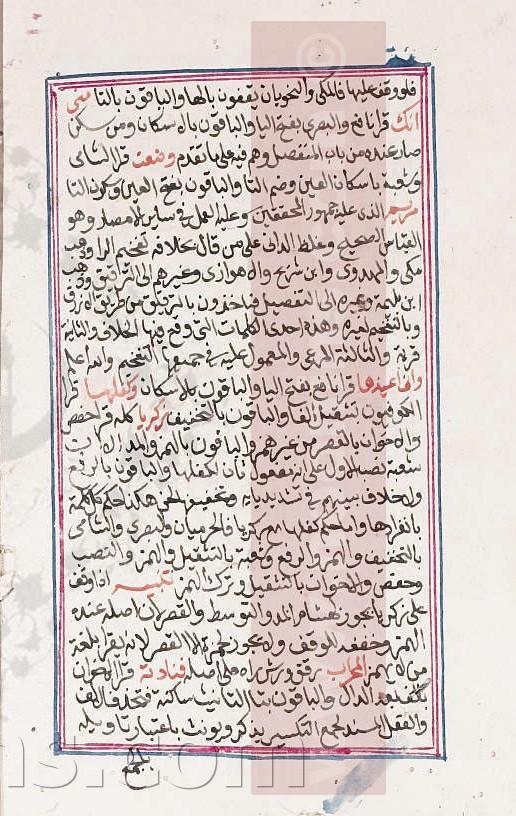 فلو وقف عليها فالمكي والنحويان يقفون بالها والباقون بالتا مني
انك قرا نافع والبصري بفتح اليا والباقون بالاسكان ومن سكن
صار عنده من باب المنفصل وهم فيه على ما تقدم وضعت قرا الشامي
وشعبة باسكان العين وضم التا والباقون بفتح العين وسكون التا
مريم الذي عليه جمهور المحققين وعليه العمل في ساير الامصار وهو
القياس الصحيح وغلط الداني على من قال بخلافه تفخيم الرا وذهب
مكي والمهدوي وابن شريح والاهوازي وغيرهم الى الترقيق وذهب
ابن بليمة وغيره الى التفصيل فياخذون بالترقيق من طريق الازرق
وبالتفخيم لغيره وهذه احدى الكلمات التي وقع فيها الخلاف والثانية
قرية والثالثة المرء والمعمول عليه في جميعها التفخيم والله اعلم
واني اعيذها قرا نافع بفتح اليا والباقون بالاسكان وكفلها قرا
الكوفيون بتثقيل الفا والباقون بالتخفيف زكريا كله قرا حفص
والاخوان بالقصر من غير همز والباقون بالهمز والمد الا ان
شعبة نصب الاول على انه مفعول ثان لكفلها والباقون بالرفع
ولا خلاف بينهم في تشديد يايه وتخفيفه لحن هكذا حكم كل كلمة
بانفرادها واما حكم كفلها مع زكريا فالحرميان والبصري والشامي
بالتخفيف والهمز والرفع وشعبة بالتثقيل والهمز والنصب
وحفص والاخوان بالتثقيل وترك الهمز تنبيه اذا وقف
على زكريا يجوز لهشام المد والتوسط والقصر لان اصله عنده
الهمز وخففه للوقف ولا يجوز لحمزة الا القصر لانه يقرا بلغة
من لا يهمز المحراب رقق ورش راه على اصله فنادته قرا الاخوان
بالف بعد الدال والباقون بتا التانيث ساكنة فتحذف الالف
والفعل المسند لجمع التكسير يذكر ويونث باعتبار تاويله
بالجمع
ns.com